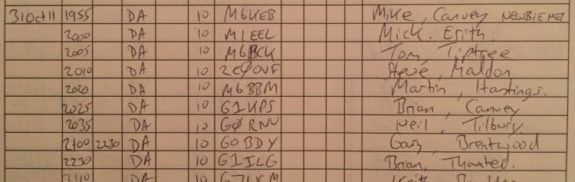 31 Oct 11 1955 DA 10 M6KEB Mike, Canvey NEWBIE NET
2000 DA 10 M1EEL Mick, Erith.
2005 DA 10 M6BCK Tom, Tiptree
2010 DA 10 2E0OVF Steve, Maldon
2020 DA 10 M6BBM Martin, Hastings.
2025 DA 10 G1UPS Brian, Canvey
2035 DA 10 G0RNU Neil, Tilbury
2100 2230 DA 10 G0BDY Gary, Brentwood
2230 DA 10 G1ILG Brian,
DA 10